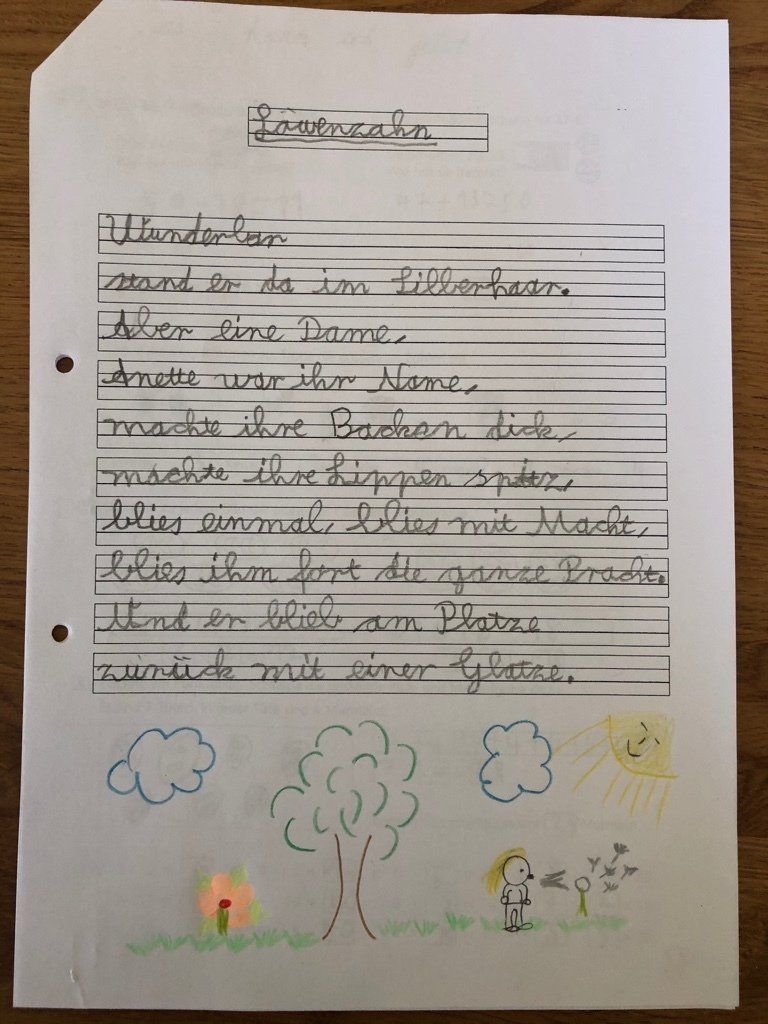 Löwenzahn
Wunderbar
stand er da im Silberhaar.
Aber eine Dame,
Anette war ihr Name,
machte ihre Backen dick,
machte ihre Lippen spitz,
blies einmal, blies mit Macht,
blies ihm fort die ganze Pracht.
Und er blieb am Platze
zurück mit einer Glatze.